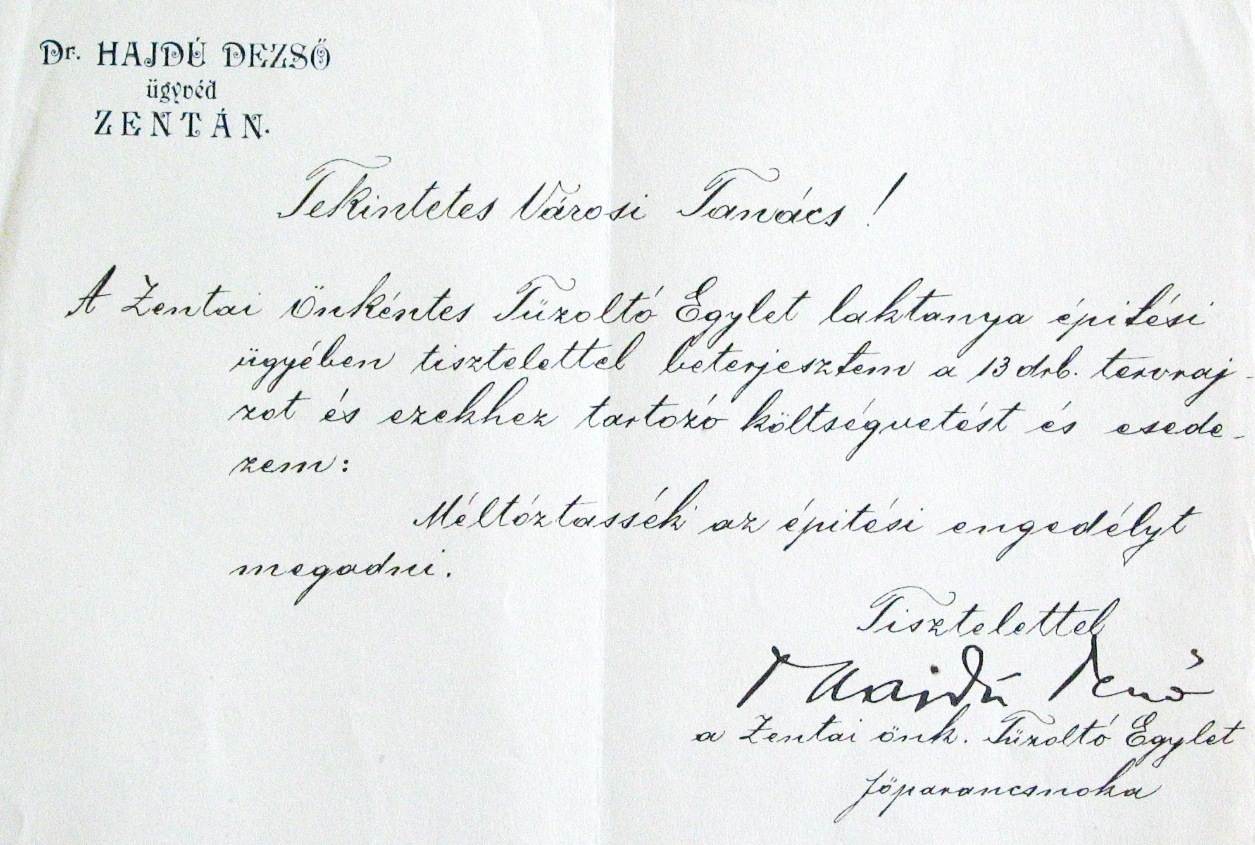 Dr. HAJDÚ DEZSŐ
ügyvéd
ZENTÁN.
Tekintetes Városi Tanács!
A Zentai Önkéntes Tüzoltó Egylet laktanya épitési
ügyében tisztelettel beterjesztem a 13 drb. tervraj-
zot és ezekhez tartozó költségvetést és esede-
zem:
Méltóztassék az épitési engedélyt
megadni.
Tisztelettel
Hajdú
a Zentai önk. Tüzoltó Egylet
főparancsnoka